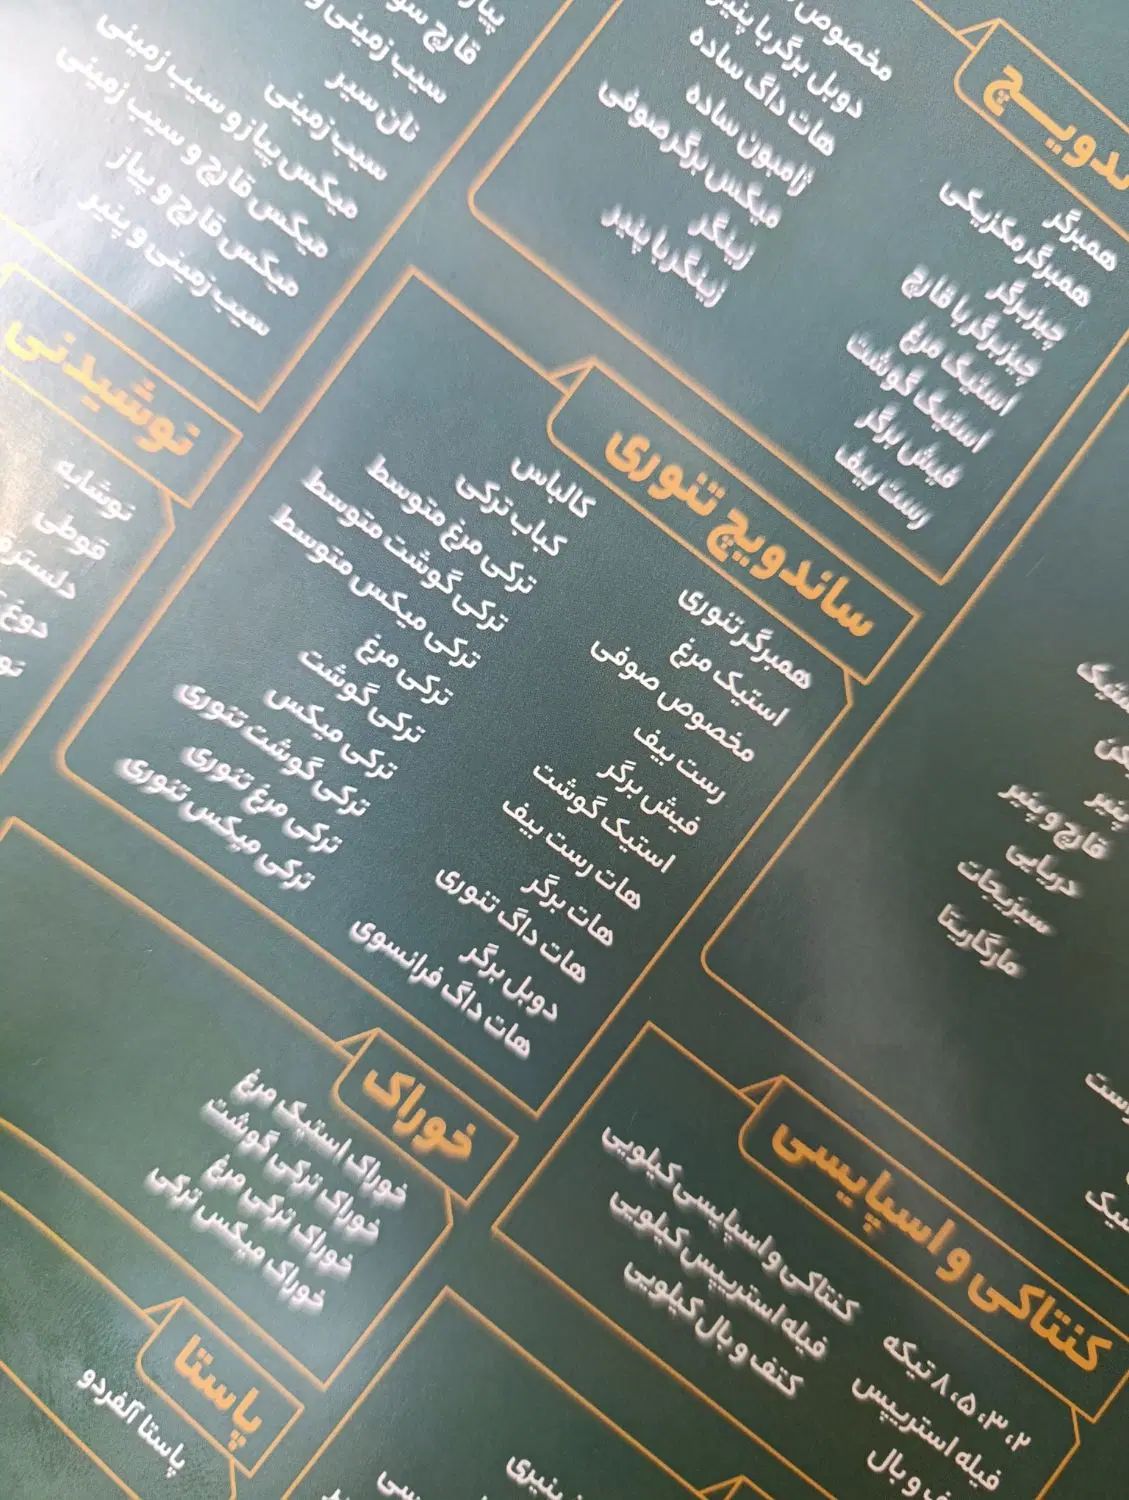 نان سیر
سیب زمینی
میکس پیاز و سیب زمینی
میکس قارچ و سیب زمینی
میکس قارچ و پیاز
سیب زمینی و پنیر
همبرگر
همبرگر مکزیکی
چیزبرگر
چیزبرگر با قارچ
استیک مرغ
استیک گوشت
فیش برگر
رست بیف
مخصوص
دوبل برگر با پنیر
هات داگ ساده
ژامبون ساده
میکس برگر صوفی
زینگر
زینگر با پنیر
نوشیدنی
نوشابه
قوطی
دلستر
دوغ
ساندویچ تنوری
همبرگر تنوری
استیک مرغ
مخصوص صوفی
رست بیف
فیش برگر
استیک گوشت
هات رست بیف
هات برگر
هات داگ تنوری
دوبل برگر
هات داگ فرانسوی
کالباس
کباب ترکی
ترکی مرغ متوسط
ترکی گوشت متوسط
ترکی میکس متوسط
ترکی مرغ
ترکی گوشت
ترکی میکس
ترکی گوشت تنوری
ترکی مرغ تنوری
ترکی میکس تنوری
پنیر
قارچ و پنیر
دریایی
سبزیجات
مارگاریتا
خوراک
خوراک استیک مرغ
خوراک ترکی گوشت
خوراک ترکی مرغ
خوراک میکس ترکی
کنتاکی و اسپایسی
۲، ۳، ۵، ۸ تیکه
فیله استریپس
و بال
کنتاکی و اسپایسی کیلویی
فیله استریپس کیلویی
کتف و بال کیلویی
پاستا
پاستا آلفردو